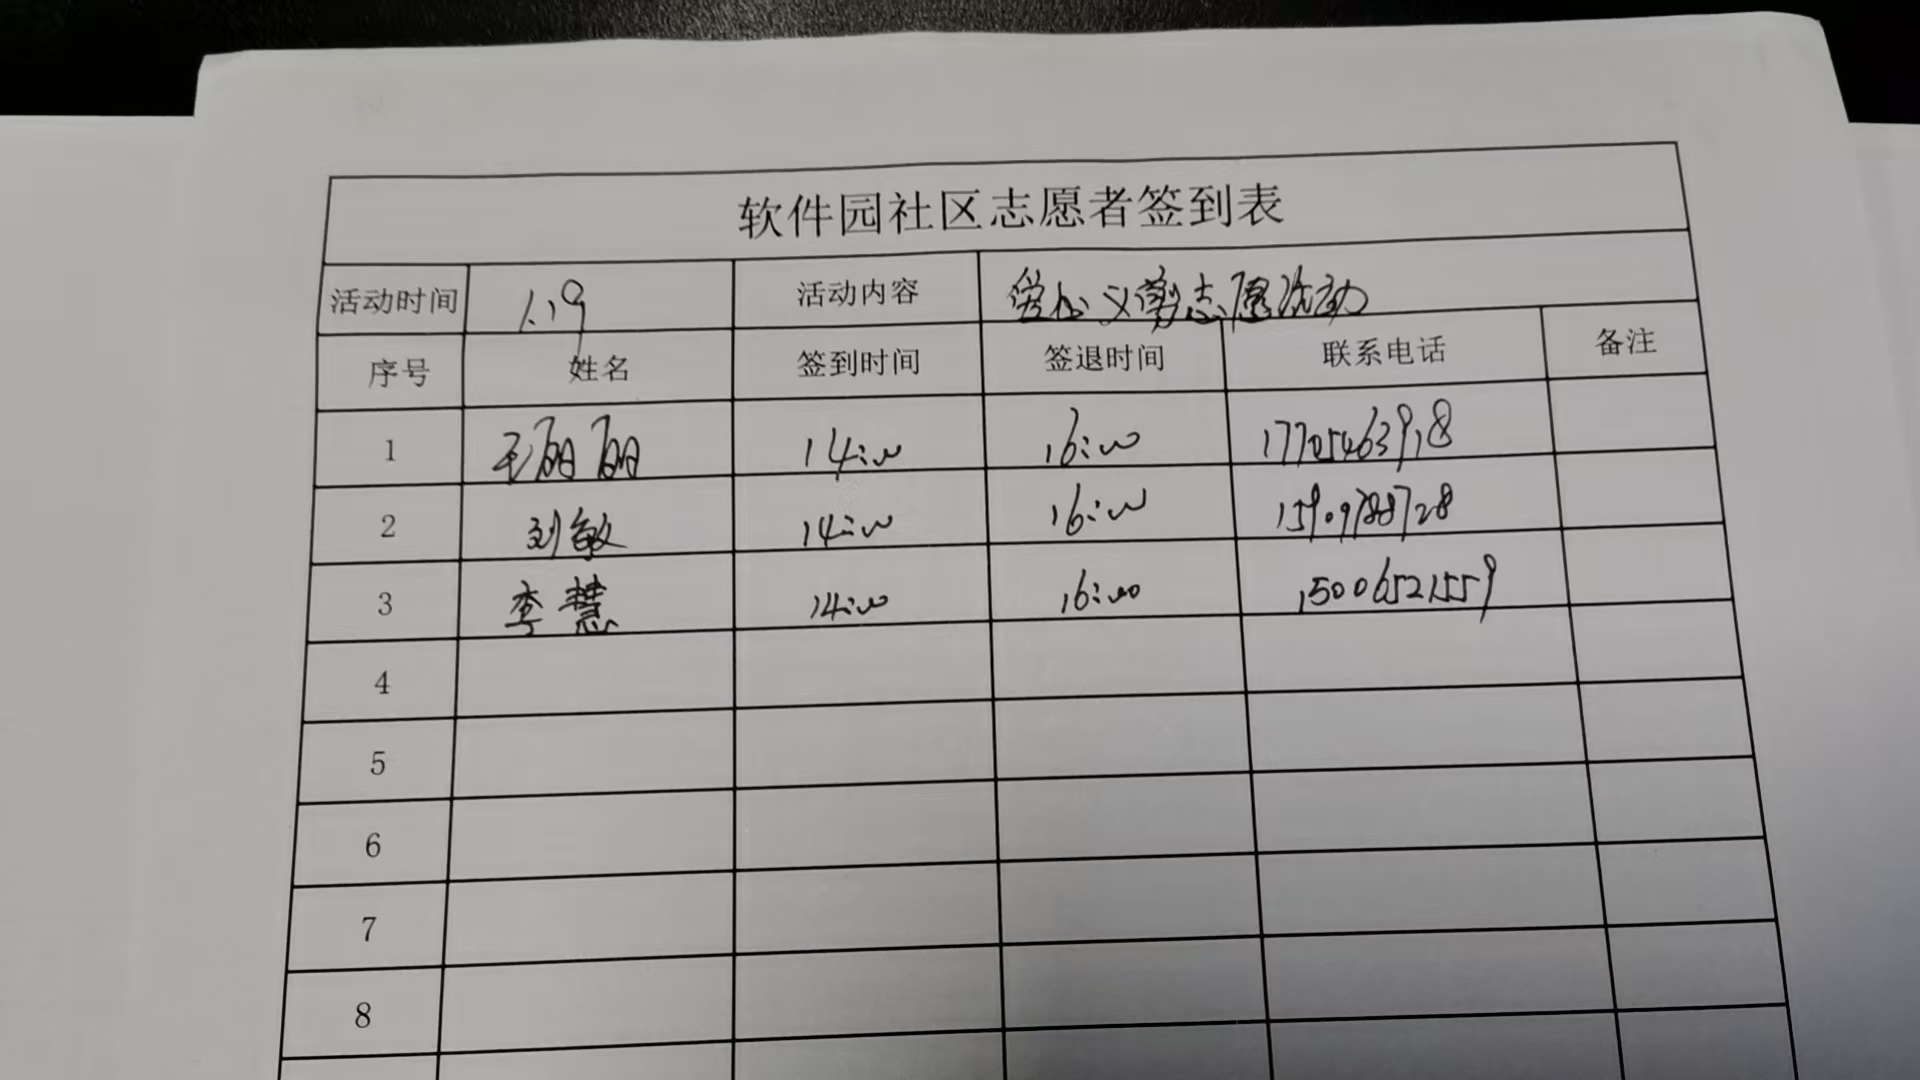 软件园社区志愿者签到表
活动时间 1.19 活动内容 爱心义剪志愿活动
序号 姓名 签到时间 签退时间 联系电话 备注
1 王丽丽 14:00 16:00 17705463918
2 刘敏 14:00 16:00 15909788728
3 李慧 14:00 16:00 15006521559
4
5
6
7
8